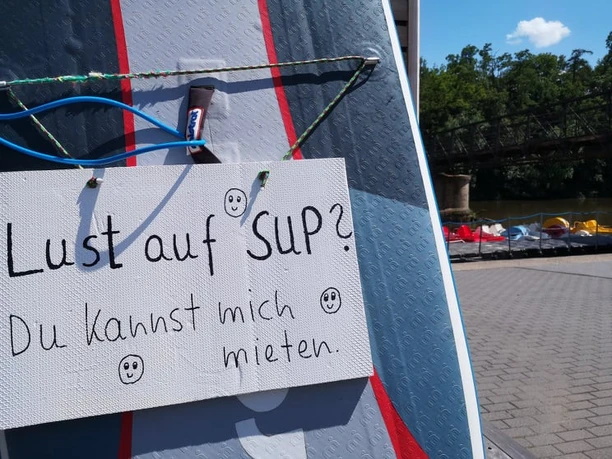 Lust auf SUP?
Du kannst mich
mieten.